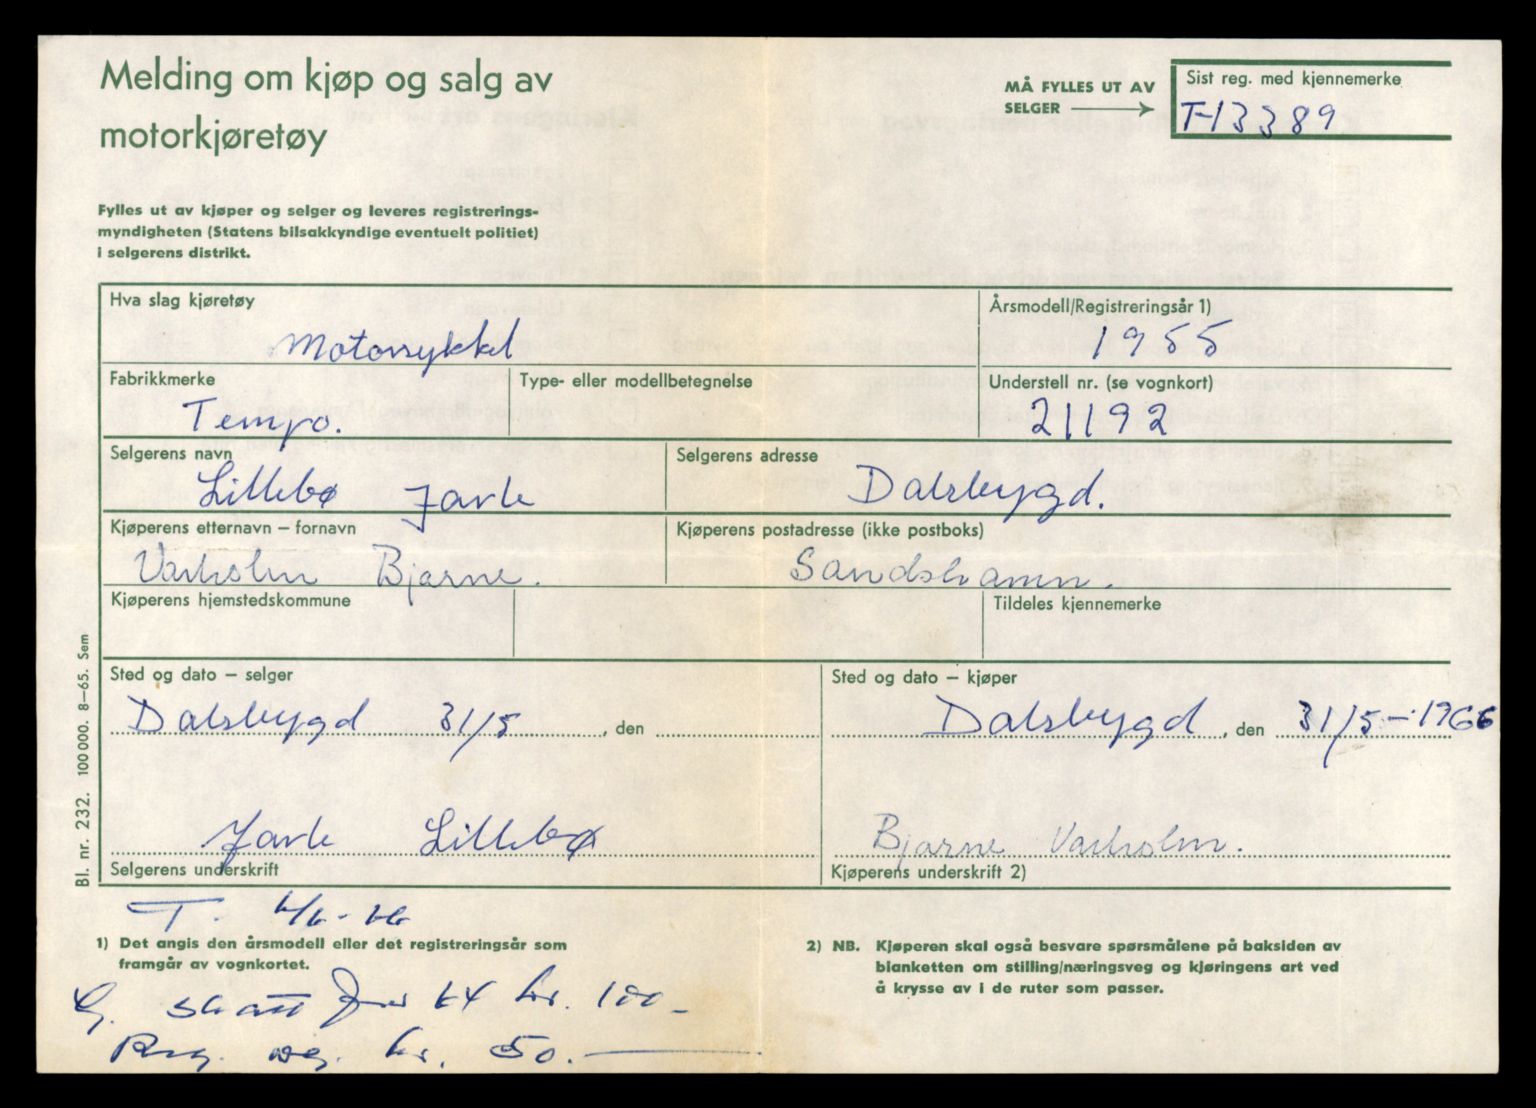 Melding om kjøp og salg av
motorkjøretøy
MÅ FYLLES UT AV
SELGER
Sist reg. med kjennemerke
T-13389
Fylles ut av kjøper og selger og leveres registrerings-
myndigheten (Statens bilsakkyndige eventuelt politiet)
i selgerens distrikt.
Hva slag kjøretøy
Motorsykkel
Årsmodell/Registreringsår 1)
1955
Fabrikkmerke
Tempo.
Type- eller modellbetegnelse
Understell nr. (se vognkort)
21192
Selgerens navn
Lillebø Jarle
Selgerens adresse
Dalsbygd.
Kjøperens etternavn – fornavn
Varholm Bjarne.
Kjøperens postadresse (ikke postboks)
Sandshamn.
Kjøperens hjemstedskommune
Tildeles kjennemerke
Sted og dato – selger
Dalsbygd 31/5 , den
Sted og dato – kjøper
Dalsbygd , den 31/5-1966
Jarle Lillebø
Selgerens underskrift
Bjarne Varholm.
Kjøperens underskrift 2)
Bl. nr. 232. 100 000. 8–65. Sem
T. 4/6-66
1) Det angis den årsmodell eller det registreringsår som
framgår av vognkortet.
2) NB. Kjøperen skal også besvare spørsmålene på baksiden av
blanketten om stilling/næringsveg og kjøringens art ved
å krysse av i de ruter som passer.
skatt for kr. 100-
Reg. kr. 50.-